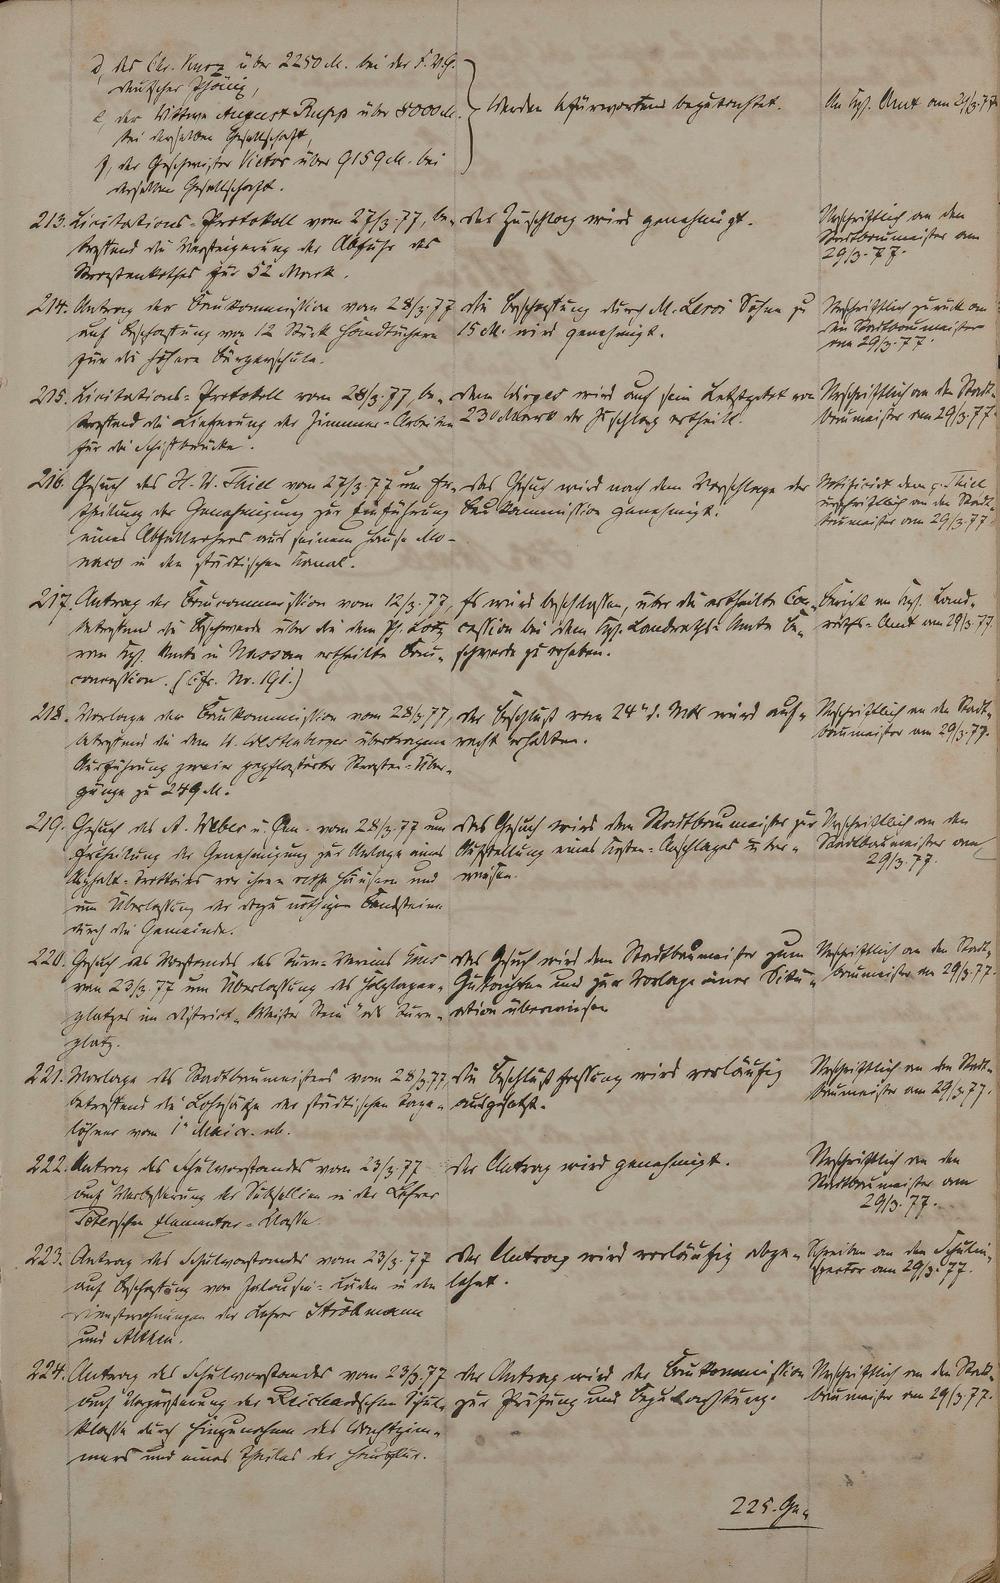 d, des Chr. Kurz über 2250 M. bei der F.V.G.
deutscher Phönix,
e, der Wittwe August Rupp über 8000 M.
bei derselben Gesellschaft,
f, der Geschwister Victor über 9159 M. bei
derselben Gesellschaft.
Werden befürwortend begutachtet.
An Kgl. Amt am 29/3.77
213. Licitations-Protokoll vom 27/3.77, be-
treffend die Versteigerung der Abfuhr des
Straßenkothes für 52 Mark.
Der Zuschlag wird genehmigt.
Urschriftlich an den
Stadtbaumeister am
29/3.77.
214. Antrag der Baukommission vom 28/3.77
auf Beschaffung von 12 Stück Handtüchern
für die höhere Bürgerschule.
Die Beschaffung durch M. Levi Söhne zu
15 M. wird genehmigt.
Urschriftlich zurück an
den Stadtbaumeister
am 29/3.77.
215. Licitations-Protokoll vom 28/3.77, be-
treffend die Lieferung der Zimmer-Arbeiten
für die Schiffbrücke.
Dem wird auf sein Letztgebot von
230 Mark der Zuschlag ertheilt.
Urschriftlich an den Stadt-
baumeister am 29/3.77.
216. Gesuch des H. W. Thiel vom 27/3.77 um Er-
theilung der Genehmigung zur Einführung
eines Abfallrohres aus seinem Hause Mo-
naco in den städtischen Kanal.
Das Gesuch wird nach dem Vorschlage der
Baukommission genehmigt.
Notificirt dem p. Thiel
urschriftlich an den Stadt-
baumeister am 29/3.77
217. Antrag der Baucommission vom 12/3.77,
betreffend die Beschwerde über die dem Ph. Lotz
von Kgl. Amte in Nassau ertheilte Bau-
concession. (Cfr. No. 191.)
Es wird beschlossen, über die ertheilte Con-
cession bei dem Kgl. Landraths-Amte Be-
schwerde zu erheben.
Bericht an Kgl. Land-
raths-Amt am 29/3.77.
218. Vorlage der Baukommission vom 28/3.77,
betreffend die dem übertragene
Ausführung zweier gepflasterter Straßen-Über-
gänge zu 249 M.
Der Beschluß vom 24ten d. Mts wird auf-
recht erhalten.
Urschriftlich an den Stadt-
baumeister am 29/3.77.
219. Gesuch des A. Weber u. Gen. vom 28/3.77 um
Ertheilung der Genehmigung zur Anlage eines
Asphalt-Trottoirs vor ihren resp. Häusern und
um Überlassung der dazu nöthigen Bandsteine
durch die Gemeinde.
Das Gesuch wird dem Stadtbaumeister zur
Aufstellung eines Kosten-Anschlages über-
wiesen.
Urschriftlich an den
Stadtbaumeister am
29/3.77.
220. Gesuch des Vorstandes des Turn-Vereins Ems
vom 23/3.77 um Überlassung des Holzlager-
platzes im District "Weißer Stein" als Turn-
platz.
Das Gesuch wird dem Stadtbaumeister zum
Gutachten und zur Vorlage einer Situ-
ation überwiesen
Urschriftlich an den Stadt-
baumeister am 29/3.77.
221. Vorlage des Stadtbaumeisters vom 28/3.77,
betreffend die Lohnsätze der städtischen Tage-
löhner vom 1ten Mai cr. ab.
Die Beschlußfassung wird vorläufig
ausgesetzt.
Urschriftlich an den Stadt-
baumeister am 29/3.77.
222. Antrag des Schulvorstandes vom 23/3.77
auf Verbesserung der Subsellien in der Lehrer
Peter'schen Elementar-Klasse.
Der Antrag wird genehmigt.
Urschriftlich an den
Stadtbaumeister am
29/3.77.
223. Antrag des Schulvorstandes vom 23/3.77
auf Beschaffung von Jalousie-Läden in den
Dienstwohnungen der Lehrer Strökmann
und Althen.
Der Antrag wird vorläufig abge-
lehnt.
Schreiben an den Schulin-
spector am 29/3.77.
224. Antrag des Schulvorstandes vom 23/3.77
auf Vergrößerung der Reichardschen Schul-
klasse durch Hinzunahme des Wachtzim-
mers und eines Theiles der Hausflur.
Der Antrag wird der Baukommission
zur Prüfung und Begutachtung.
Urschriftlich an den Stadt-
baumeister am 29/3.77.
225. Ge-